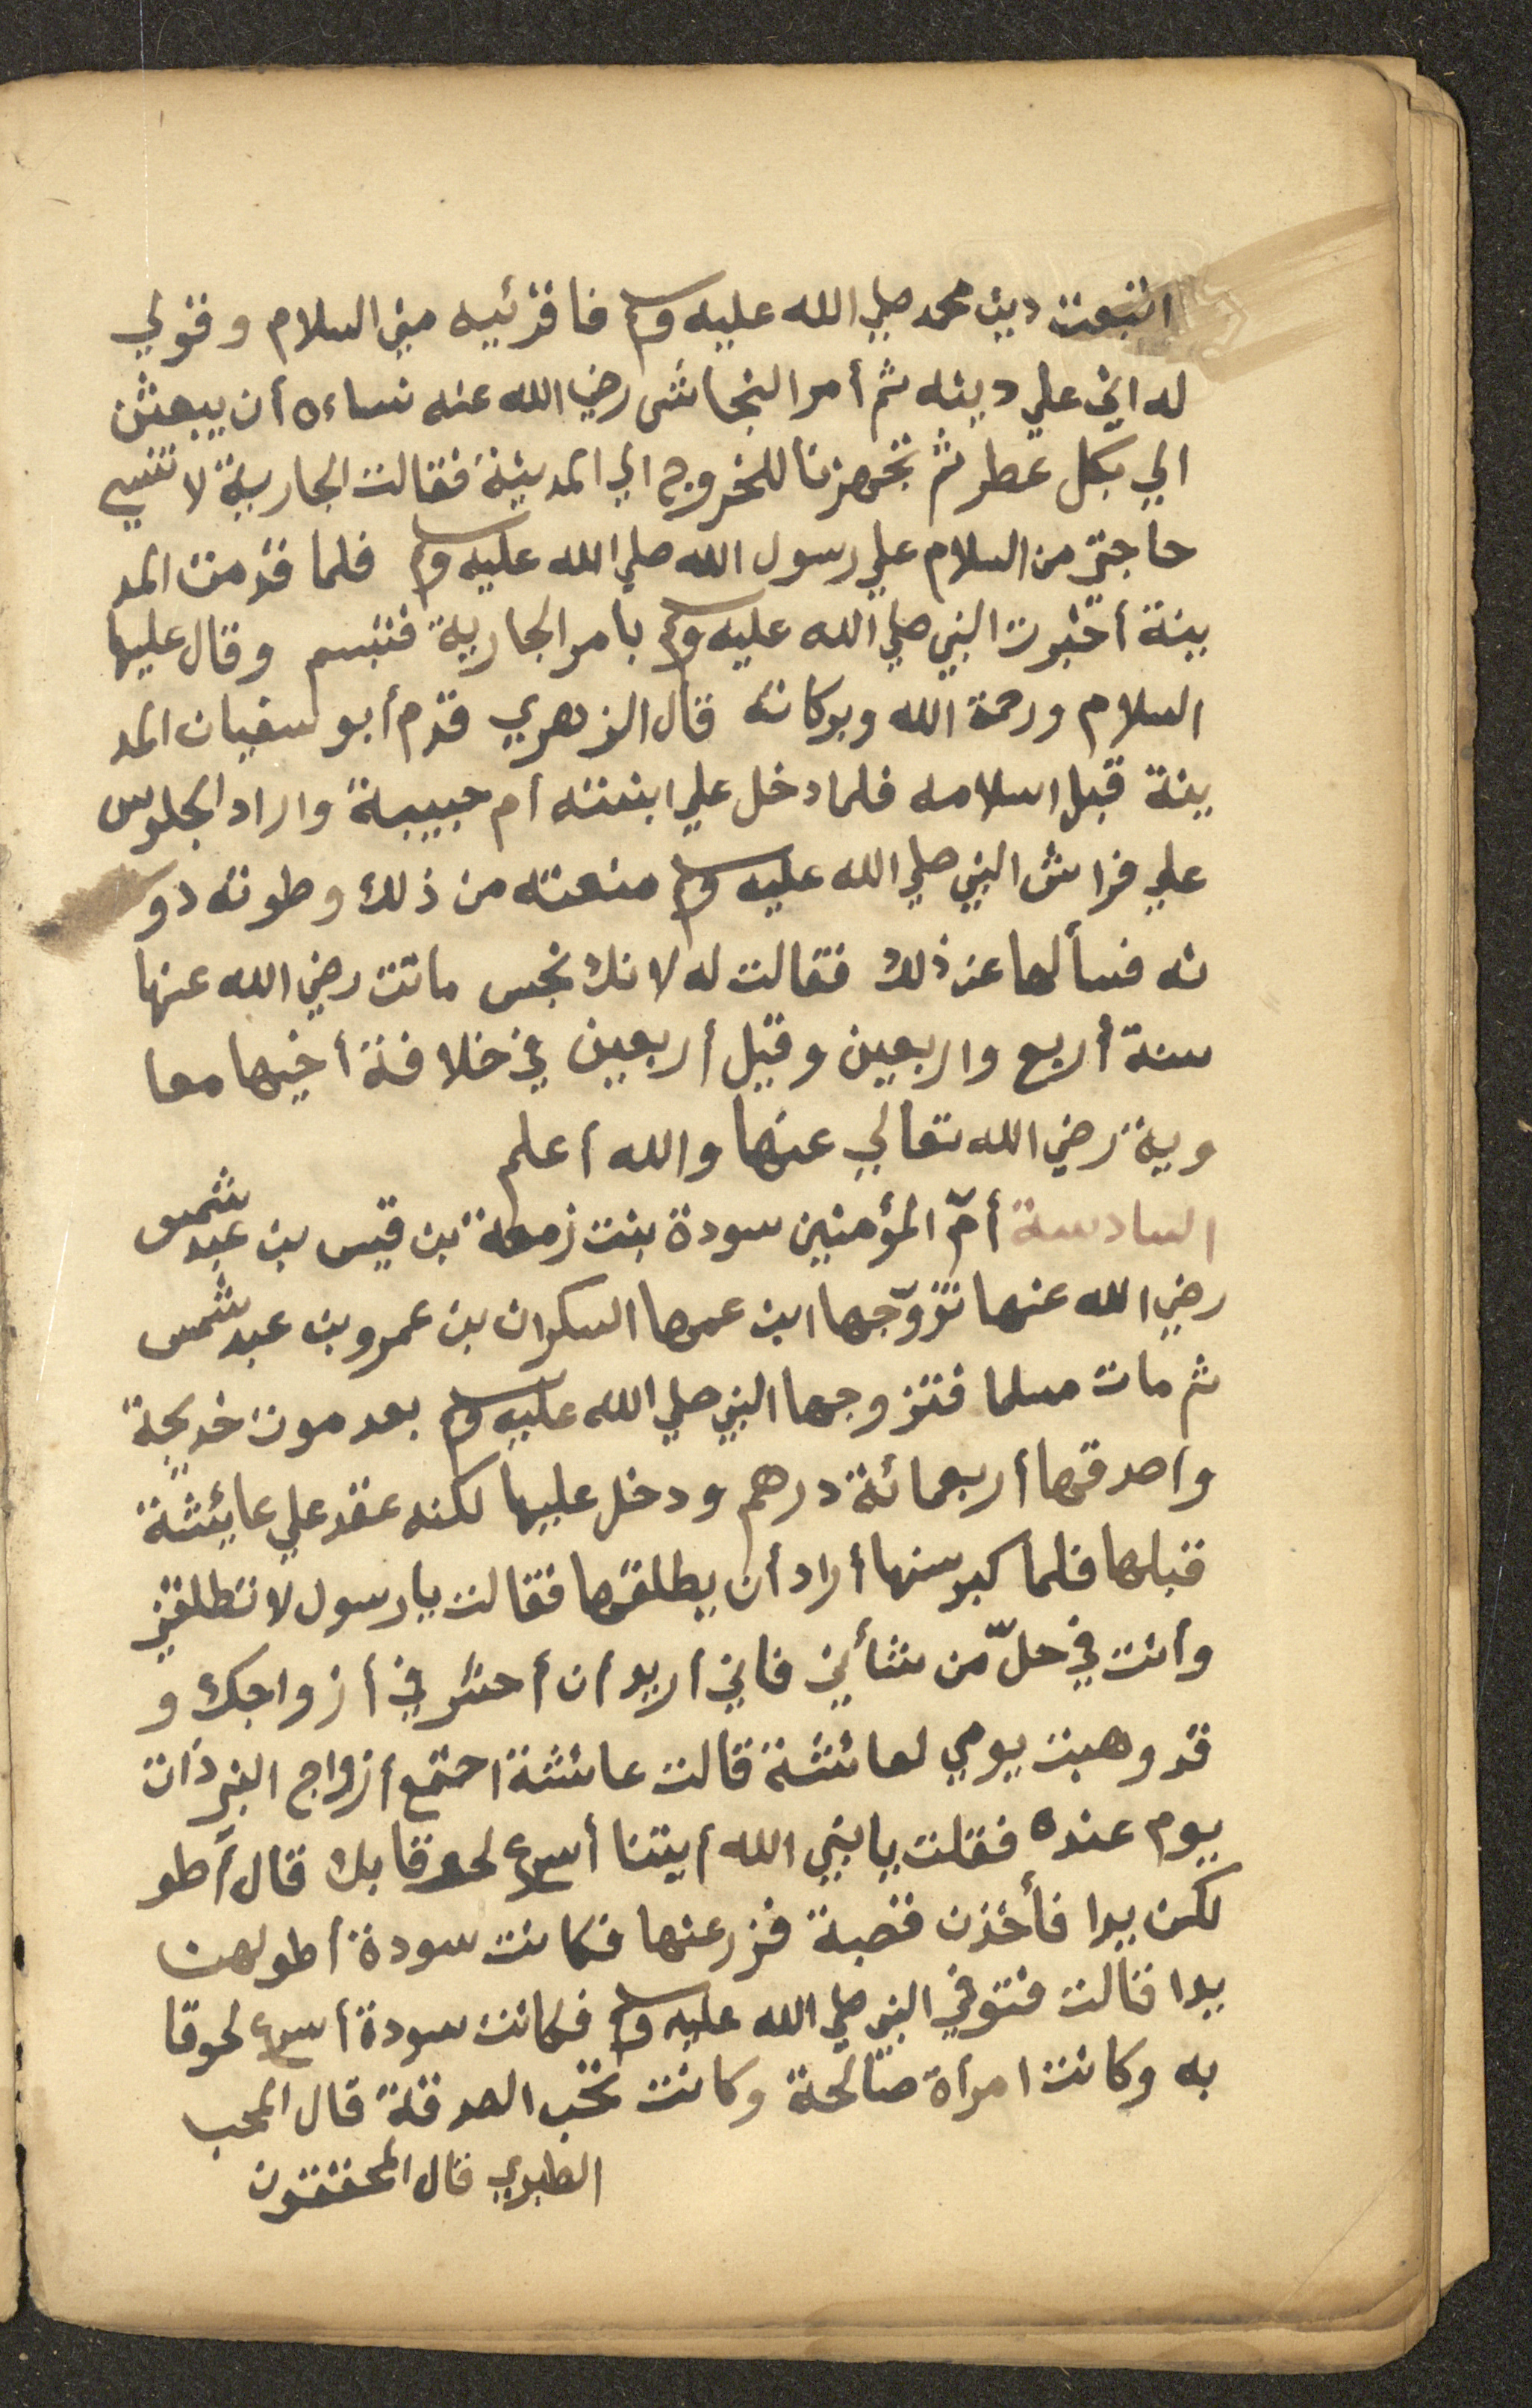 اتبعت دين محمد صلي الله عليه وسلم فاقرئيه مني السلام وقولي
له اني علي دينه ثم أمر النجاشى رضي الله عنه نساءه أن يبعثن
الي بكل عطر ثم تجهزنا للخروج الي المدينة فقالت الجارية لا تنسي
حاجتي من السلام علي رسول الله صلي الله عليه وسلم فلما قدمت المد
ينة أخبرت النبي صلي الله عليه وسلم بامر الجارية فتبسم وقال عليها
السلام ورحمة الله وبركاته قال الزهري قدم أبو سفيان المد
ينة قبل اسلامه فلما دخل علي ابنته ام حبيبة واراد الجلوس
علي فراش النبي صلي الله عليه وسلم منعته من ذلك وطوته دو
نه فسألها عن ذلك فقالت له لانك نجس ماتت رضي الله عنها
سنة أربع واربعين وقيل أربعين في خلافة أخيها معا
وية رضي الله تعالي عنها والله أعلم
السادسة أمّ المؤمنين سودة بنت زمعة بن قيس بن عبد شمس
رضي الله عنها تزوّجها ابن عمها السكران بن عمرو بن عبد شمس
ثم مات مسلما فتزوجها النبي صلي الله عليه وسلم بعد موت خديجة
واصدقها أربعمائة درهم ودخل عليها لكنه عقد علي عايئشة
قبلها فلما كبر سنها أراد أن يطلقها فقالت يا رسول لا تطلقني
وأنت في حلّ من شأني فاني اريد ان أحشر في أزواجك و
قد وهبت يومي لعائشة قالت عائشة اجتمع أزواج النبي ذات
يوم عنده فقلت يا نبي الله أيتنا أسرع لحوقا بك قال أطو
لكن يدا فأخذن قصبة فزرعنها فكانت سودة أطولهن
يدا قالت فتوفي النبي صلي الله عليه وسلم فكانت سودة أسرع لحوقا
به وكانت امرأة صالحة وكانت تحب الصدقة قال المحب
الطبري قال المحققون